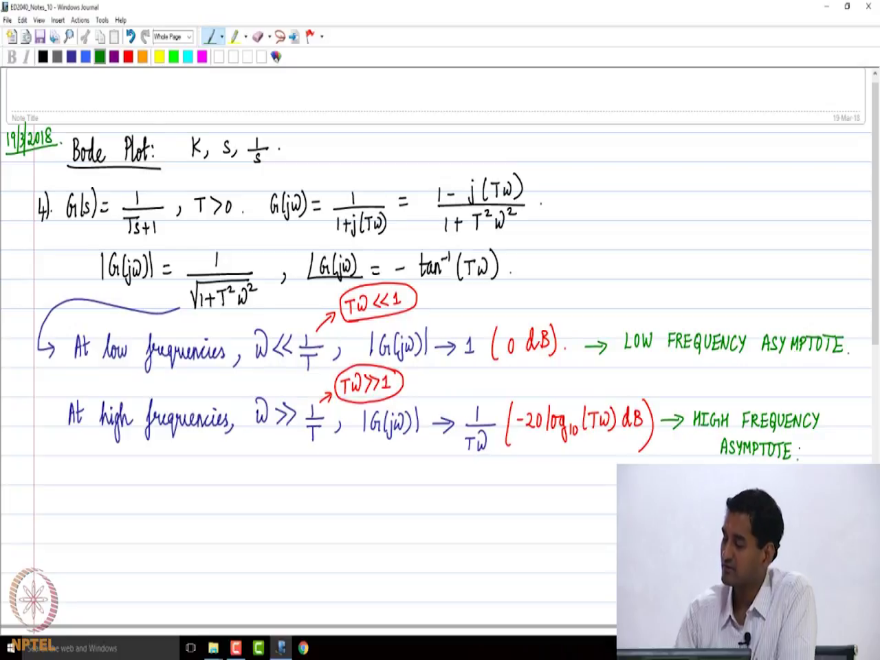 ED2040_Notes_10 - Windows Journal
File Edit View Insert Actions Tools Help
Whole Page
B I
Note Title
19-Mar-18
19/3/2018.
Bode Plot: K, s, 1/s.
4). G(s) = 1/(Ts+1), T>0. G(jω) = 1/(1+j(Tω)) = (1-j(Tω))/(1+T²ω²).
|G(jω)| = 1/√(1+T²ω²), ∠G(jω) = - tan⁻¹(Tω).
Tω<<1
At low frequencies, ω << 1/T, |G(jω)| → 1 (0 dB). → LOW FREQUENCY ASYMPTOTE.
Tω>>1
At high frequencies, ω >> 1/T, |G(jω)| → 1/Tω (-20 log₁₀(Tω) dB) → HIGH FREQUENCY
ASYMPTOTE:
NPTEL
the web and Windows